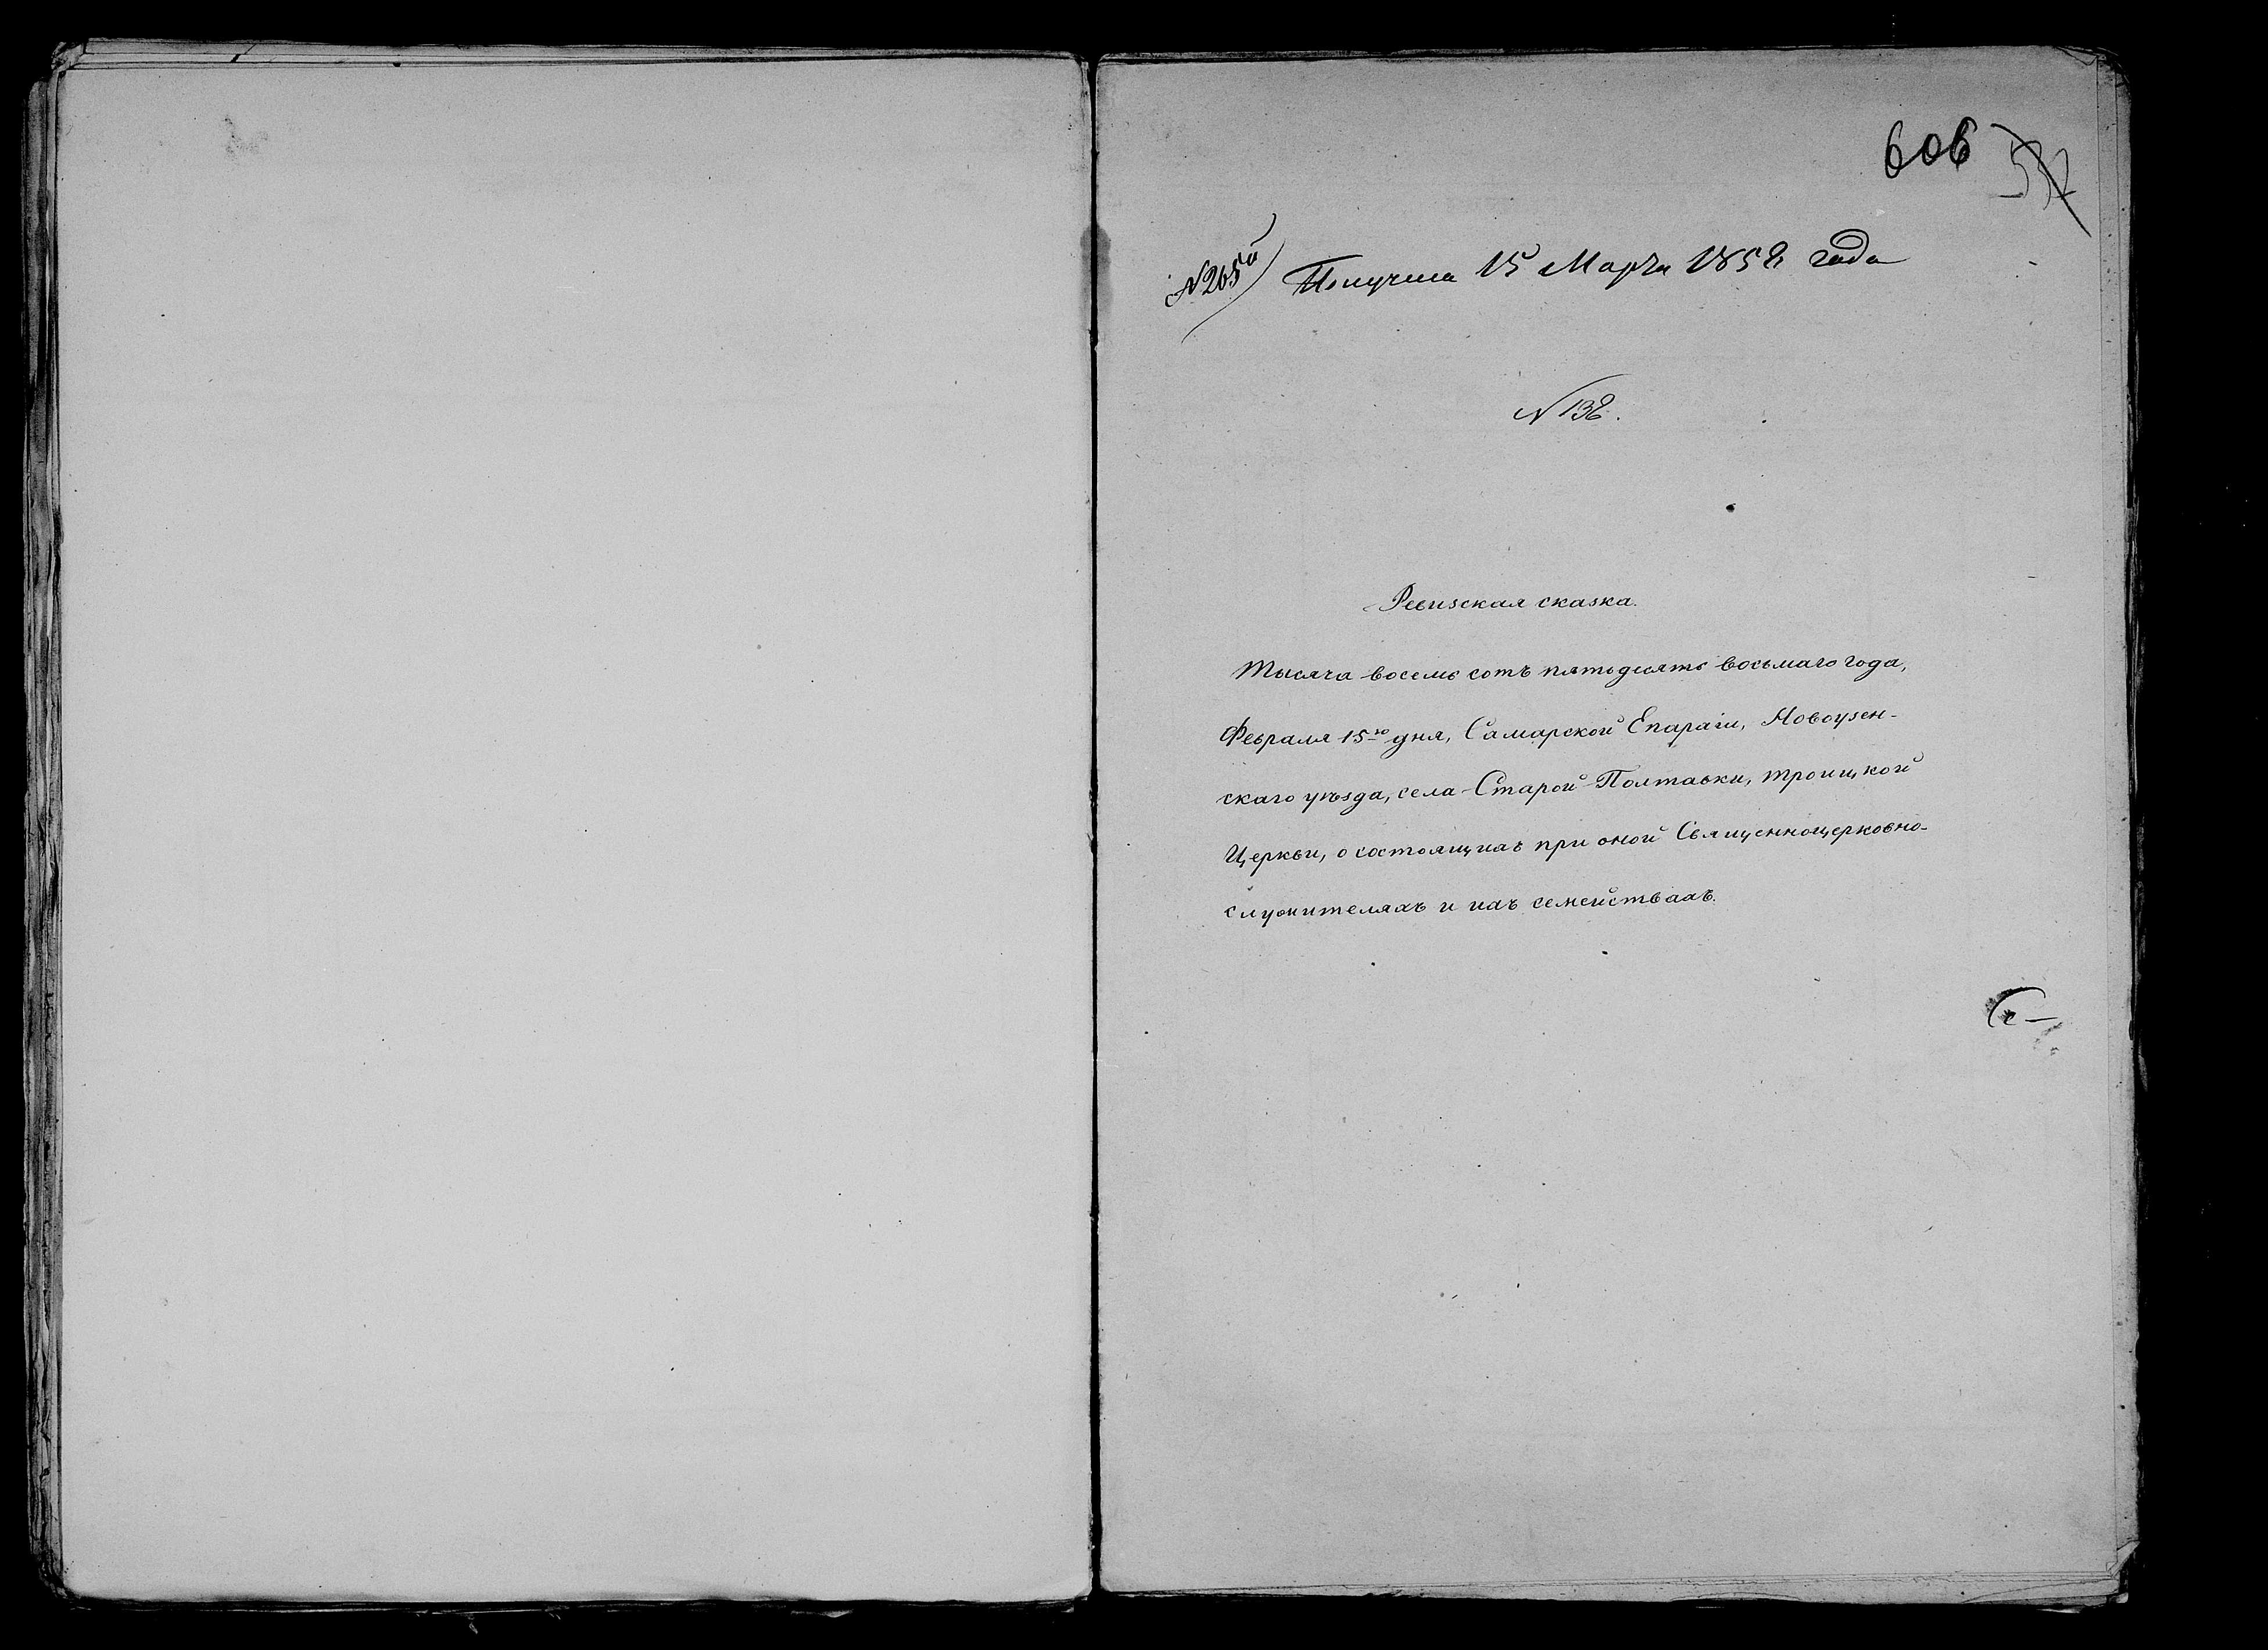 606
№ 265й
Получена 15 Марта 1858 года
№ 138.
Ревизская сказка.
Тысяча восемь сотъ пятьдесятъ восьмаго года,
Февраля 15го дня, Самарской Епархіи, Новоузен-
скаго уѣзда, села Старой Полтавки, Троицкой
Церкви, о состоящихъ при оной Священноцерковно-
служителяхъ и ихъ семействахъ.